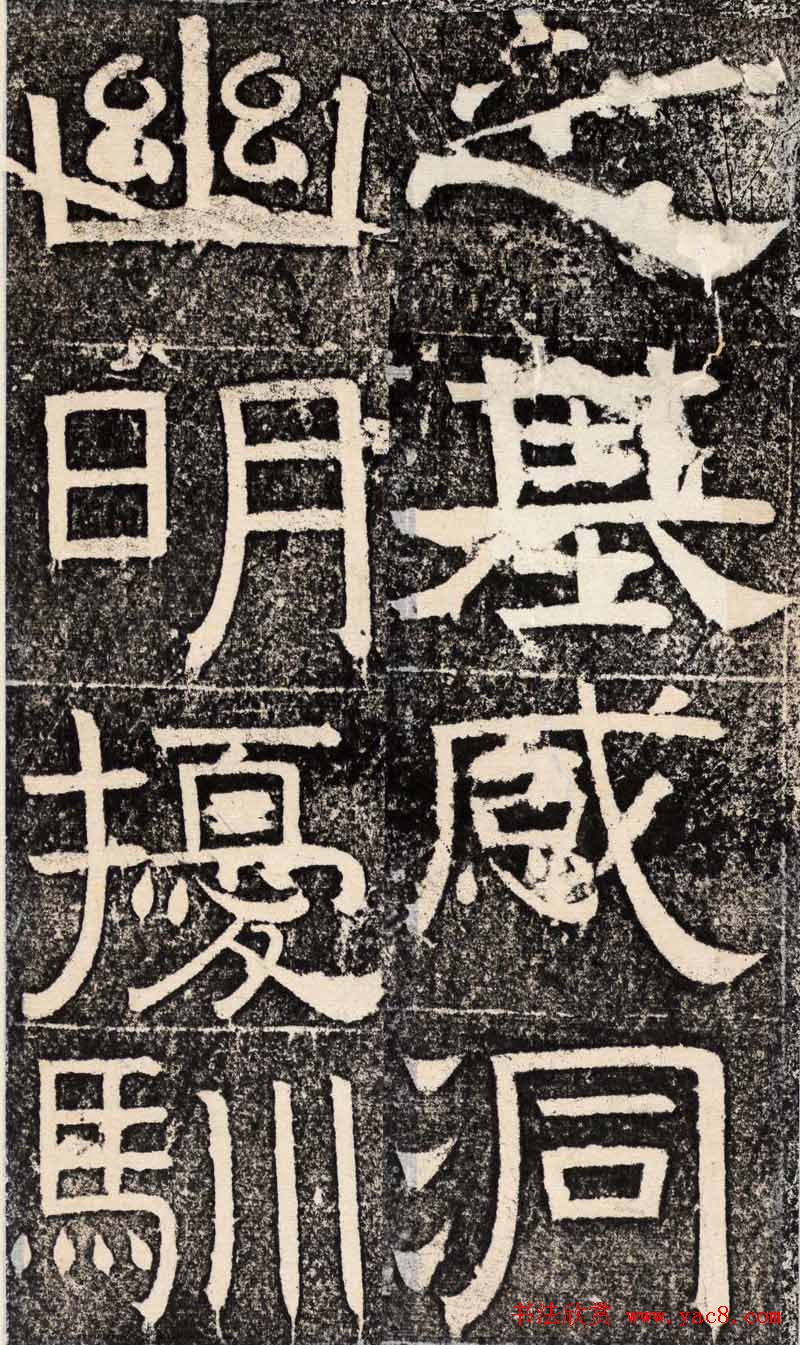 之基感洞
幽明擾馴
书法欣赏 www.yac8.com